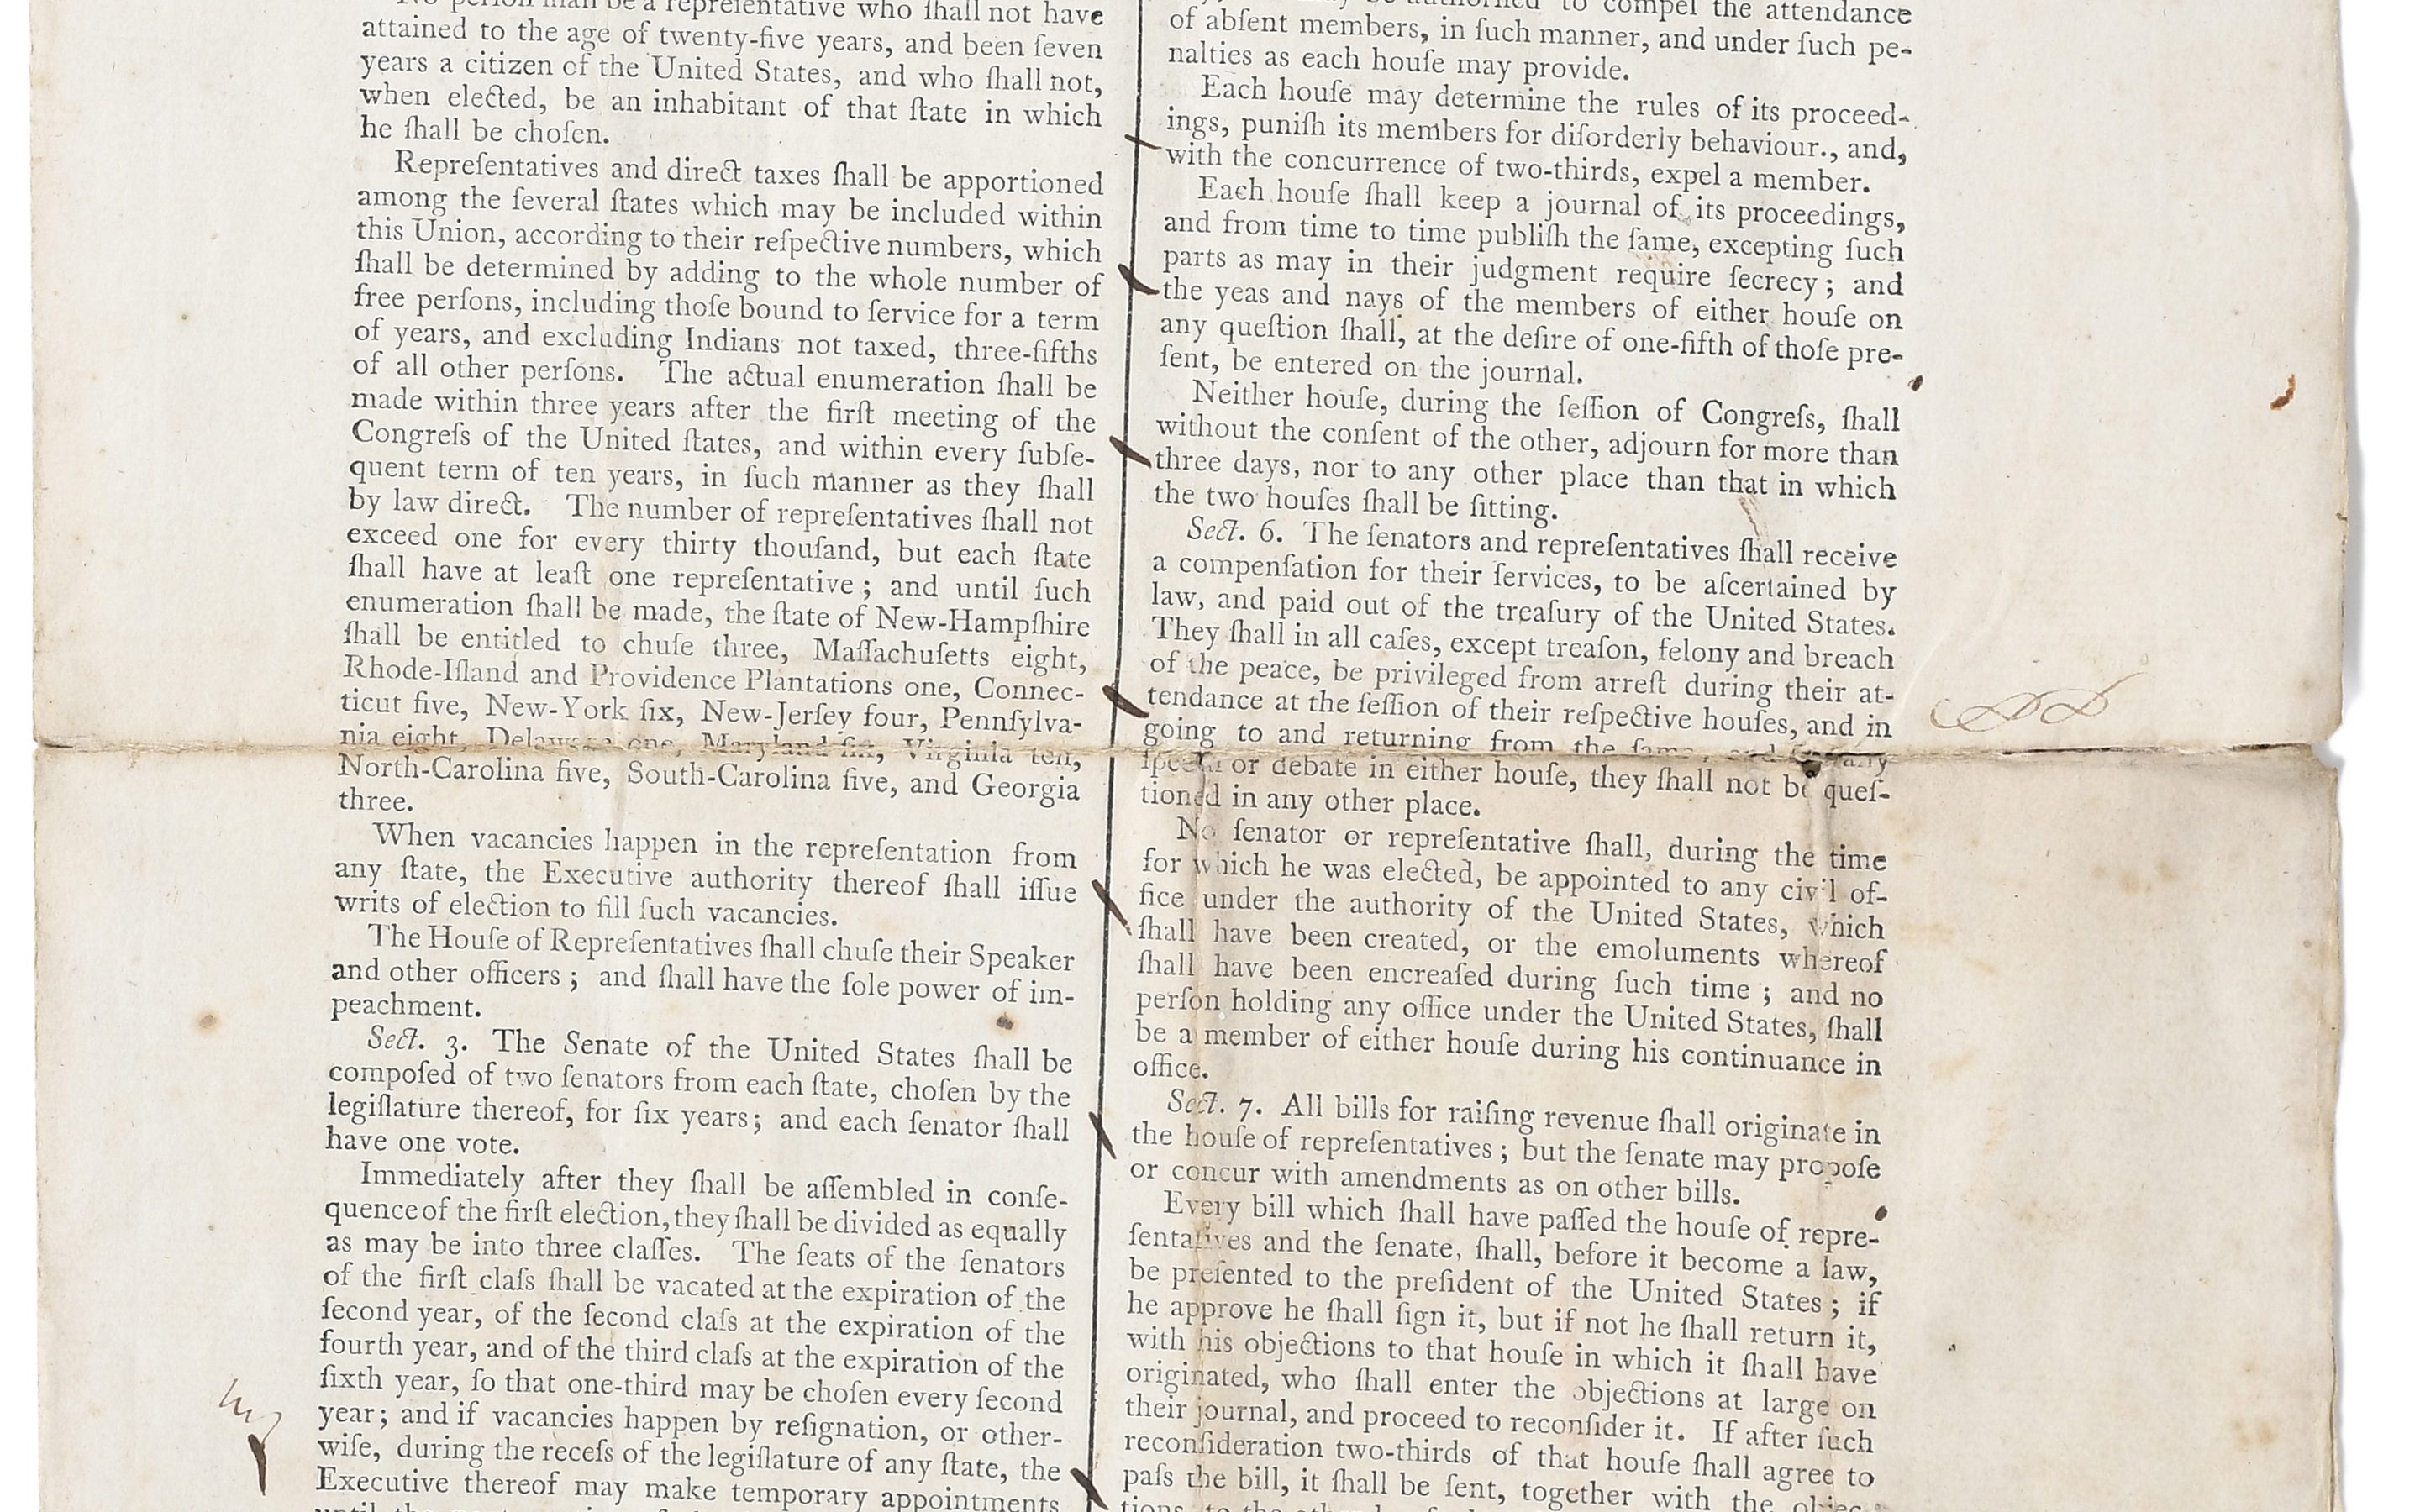 No person shall be a representative who shall not have
attained to the age of twenty-five years, and been ſeven
years a citizen of the United States, and who ſhall not,
when elected, be an inhabitant of that ſtate in which
he ſhall be choſen.
Repreſentatives and direct taxes ſhall be apportioned
among the ſeveral ſtates which may be included within
this Union, according to their reſpective numbers, which
ſhall be determined by adding to the whole number of
free perſons, including thoſe bound to ſervice for a term
of years, and excluding Indians not taxed, three-fifths
of all other perſons. The actual enumeration ſhall be
made within three years after the firſt meeting of the
Congreſs of the United ſtates, and within every ſubſe-
quent term of ten years, in ſuch manner as they ſhall
by law direct. The number of repreſentatives ſhall not
exceed one for every thirty thouſand, but each ſtate
ſhall have at leaſt one repreſentative; and until ſuch
enumeration ſhall be made, the ſtate of New-Hampſhire
ſhall be entitled to chuſe three, Maſſachuſetts eight,
Rhode-Iſland and Providence Plantations one, Connec-
ticut five, New-York ſix, New-Jerſey four, Pennſylva-
nia eight, Delaware one, Maryland ſix, Virginia ten,
North-Carolina five, South-Carolina five, and Georgia
three.
When vacancies happen in the repreſentation from
any ſtate, the Executive authority thereof ſhall iſſue
writs of election to fill ſuch vacancies.
The Houſe of Repreſentatives ſhall chuſe their Speaker
and other officers; and ſhall have the ſole power of im-
peachment.
Sect. 3. The Senate of the United States ſhall be
compoſed of two ſenators from each ſtate, choſen by the
legiſlature thereof, for ſix years; and each ſenator ſhall
have one vote.
Immediately after they ſhall be aſſembled in conſe-
quence of the firſt election, they ſhall be divided as equally
as may be into three claſſes. The ſeats of the ſenators
of the firſt claſs ſhall be vacated at the expiration of the
ſecond year, of the ſecond claſs at the expiration of the
fourth year, and of the third claſs at the expiration of the
ſixth year, ſo that one-third may be choſen every ſecond
year; and if vacancies happen by reſignation, or other-
wiſe, during the receſs of the legiſlature of any ſtate, the
Executive thereof may make temporary appointments
to compel the attendance
of abſent members, in ſuch manner, and under ſuch pe-
nalties as each houſe may provide.
Each houſe may determine the rules of its proceed-
ings, puniſh its members for diſorderly behaviour., and,
with the concurrence of two-thirds, expel a member.
Each houſe ſhall keep a journal of its proceedings,
and from time to time publiſh the ſame, excepting ſuch
parts as may in their judgment require ſecrecy; and
the yeas and nays of the members of either houſe on
any queſtion ſhall, at the deſire of one-fifth of thoſe pre-
ſent, be entered on the journal.
Neither houſe, during the ſeſſion of Congreſs, ſhall
without the conſent of the other, adjourn for more than
three days, nor to any other place than that in which
the two houſes ſhall be ſitting.
Sect. 6. The ſenators and repreſentatives ſhall receive
a compenſation for their ſervices, to be aſcertained by
law, and paid out of the treaſury of the United States.
They ſhall in all caſes, except treaſon, felony and breach
of the peace, be privileged from arreſt during their at-
tendance at the ſeſſion of their reſpective houſes, and in
going to and returning from the ſame, and any
ſpeech or debate in either houſe, they ſhall not be queſ-
tioned in any other place.
No ſenator or repreſentative ſhall, during the time
for which he was elected, be appointed to any civil of-
fice under the authority of the United States, which
ſhall have been created, or the emoluments whereof
ſhall have been encreaſed during ſuch time; and no
perſon holding any office under the United States, ſhall
be a member of either houſe during his continuance in
office.
Sect. 7. All bills for raiſing revenue ſhall originate in
the houſe of repreſentatives; but the ſenate may propoſe
or concur with amendments as on other bills.
Every bill which ſhall have paſſed the houſe of repre-
ſentatives and the ſenate, ſhall, before it become a law,
be preſented to the preſident of the United States; if
he approve he ſhall ſign it, but if not he ſhall return it,
with his objections to that houſe in which it ſhall have
originated, who ſhall enter the objections at large on
their journal, and proceed to reconſider it. If after ſuch
reconſideration two-thirds of that houſe ſhall agree to
paſs the bill, it ſhall be ſent, together with the objec-